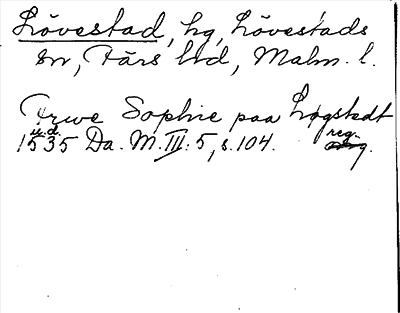 Lövestad, hg, Lövestads
sn, Färs hd, Malm. l.
Frwe Sophie paa Løgstedt
u.d.
1535 Da. M. III: 5, s. 104. reg.